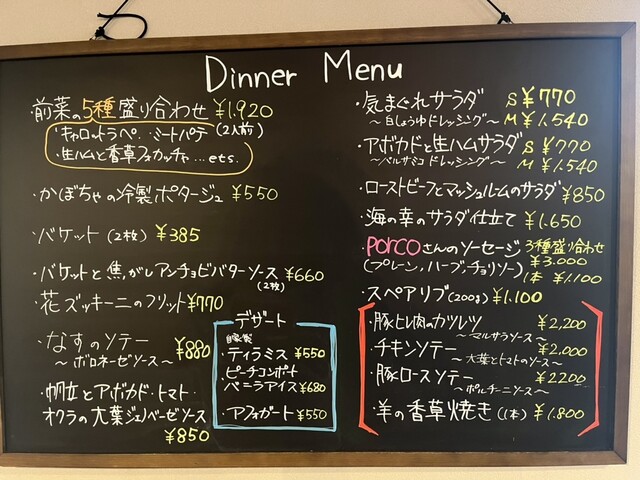 Dinner Menu
・前菜の5種盛り合わせ ¥1.920
・キャロットラペ、・ミートパテ (2人前)
・生ハムと香草フォカッチャ…ets.
・かぼちゃの冷製ポタージュ ¥550
・バケット (2枚) ¥385
・バケットと焦がしアンチョビバターソース ¥660
(2枚)
・花ズッキーニのフリット ¥770
・なすのソテー ¥880
〜ボロネーゼソース〜
・帆立とアボカド・トマト・
オクラの大葉ジェノベーゼソース
¥850
デザート
自家製
・ティラミス ¥550
・ピーチコンポート
・バニラアイス ¥680
・アフォガート ¥550
・気まぐれサラダ S ¥770
〜白しょうゆドレッシング〜 M ¥1.540
・アボカドと生ハムサラダ S ¥770
〜バルサミコドレッシング〜 M ¥1.540
・ローストビーフとマッシュルームのサラダ ¥850
・海の幸のサラダ仕立て ¥1.650
・PORCOさんのソーセージ 3種盛り合わせ
(プレーン、ハーブ、チョリソー) ¥3.000
1本 ¥1.100
・スペアリブ (200g) ¥1.100
・豚ヒレ肉のカツレツ ¥2,200
〜マルサラソース〜
・チキンソテー ¥2.000
〜大葉とトマトのソース〜
・豚ロースソテー ¥2200
〜ポルチーニソース〜
・羊の香草焼き (1本) ¥1.800